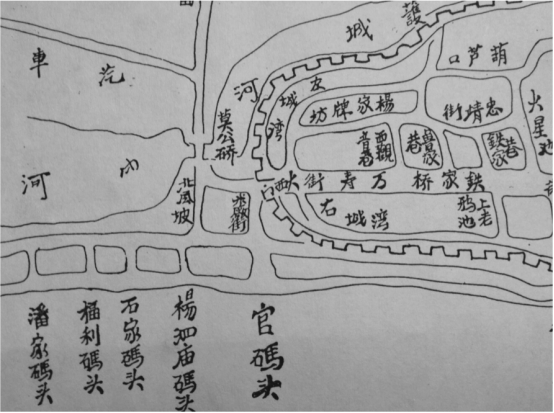 護城河
汽車
内河
莫公桥
北風坡
左城湾
楊家牌坊
葫芦口
忠靖街
火星
西觀音巷
曾家巷
鉄家巷
大西门
万寿街
鉄家桥
右城湾
上老鸦池
官碼头
楊泗庙碼头
石家碼头
福利碼头
潘家碼头